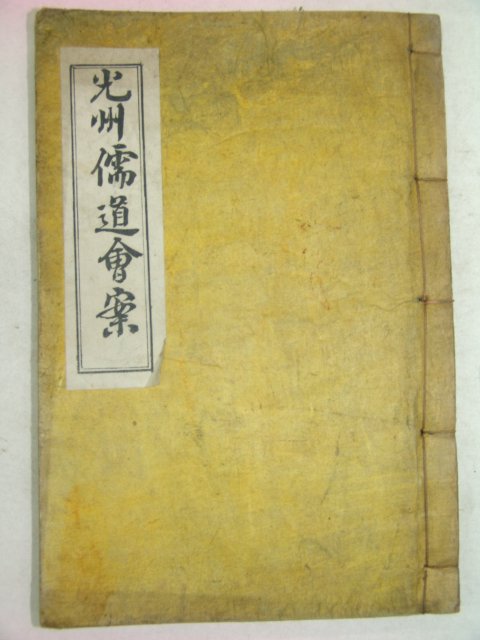 光州儒道會案